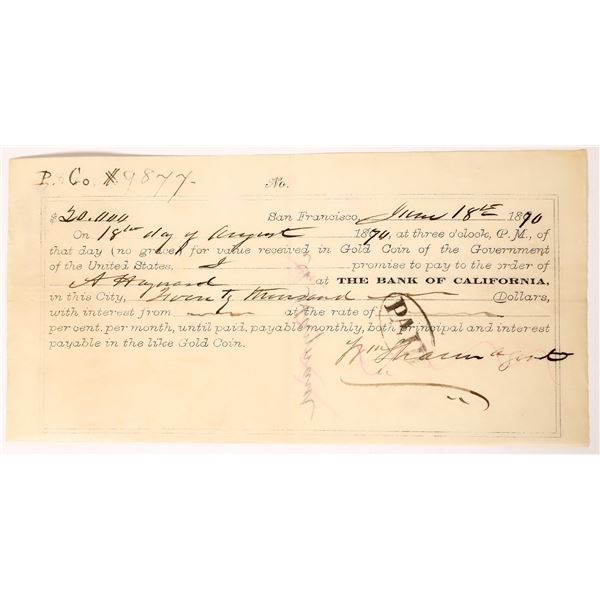 P. Co. $9877.
No.
$20.000 San Francisco, June 18th 1890
On 18th day of August 1890, at three o'clock, P.M., of
that day (no grace) for value received in Gold Coin of the Government
of the United States, I promise to pay to the order of
A Hayward at THE BANK OF CALIFORNIA,
in this City, Twenty thousand Dollars,
with interest from at the rate of
per cent. per month, until paid, payable monthly, both principal and interest
payable in the like Gold Coin.
PAID
Wm Sharon agent